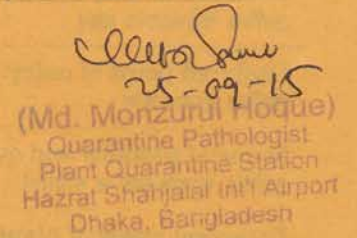 25-09-15
(Md. Monzurul Hoque)
Quarantine Pathologist
Plant Quarantine Station
Hazrat Shahjalal Int'l Airport
Dhaka, Bangladesh